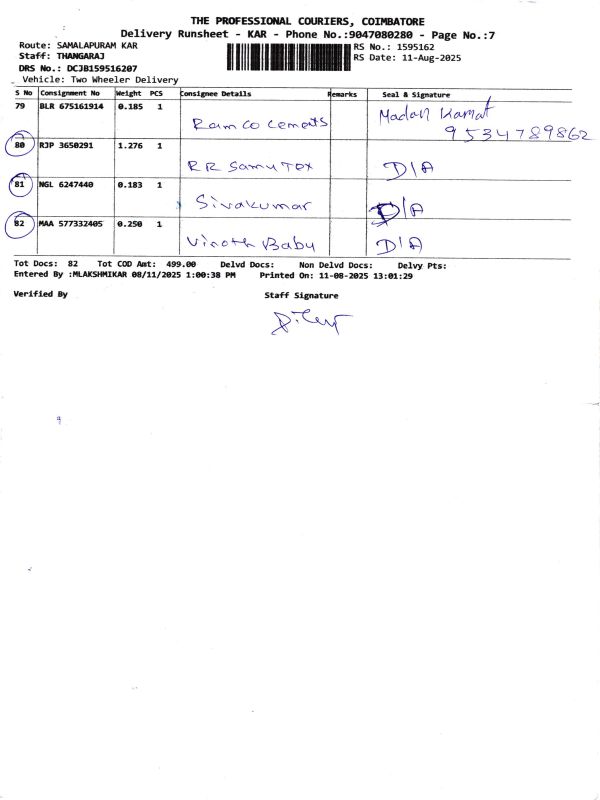 THE PROFESSIONAL COURIERS, COIMBATORE
Delivery Runsheet - KAR - Phone No.:9047080280 - Page No.:7
Route: SAMALAPURAM KAR RS No.: 1595162
Staff: THANGARAJ RS Date: 11-Aug-2025
DRS No.: DCJB159516207
Vehicle: Two Wheeler Delivery
S No Consignment No Weight PCS Consignee Details Remarks Seal & Signature
79 BLR 675161914 0.185 1 Ramco cements Madan Kamat
9534789862
80 RJP 3650291 1.276 1
RR Samy Tex D/A
81 NGL 6247440 0.183 1
Sivakumar D/A
82 MAA 577332405 0.250 1
Vinoth Baby D/A
Tot Docs: 82 Tot COD Amt: 499.00 Delvd Docs: Non Delvd Docs: Delvy Pts:
Entered By :MLAKSHMIKAR 08/11/2025 1:00:38 PM Printed On: 11-08-2025 13:01:29
Verified By Staff Signature